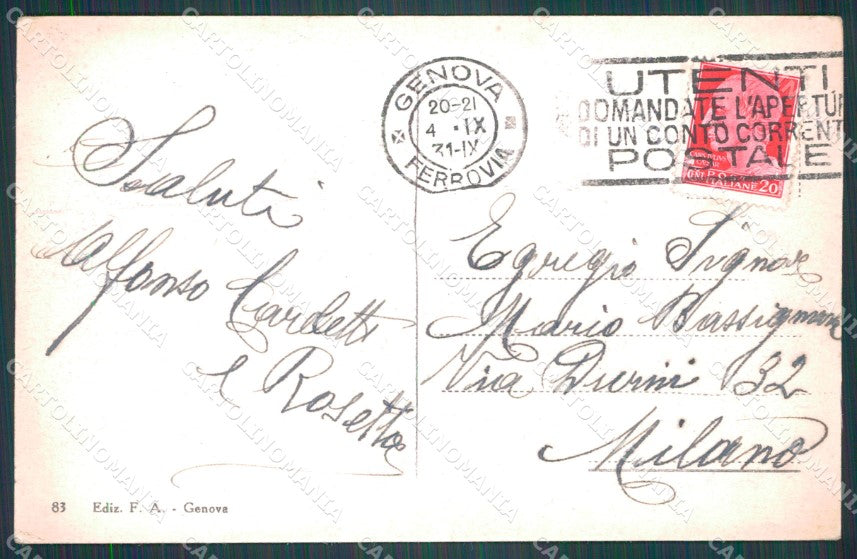 GENOVA
20-21
4 . IX
31-IX
FERROVIA
UTENTI
DOMANDATE L'APERTUR
DI UN CONTO CORRENT
POSTALE
POSTE ITALIANE 20
Saluti
Alfonso Cardetti
e Rosetta
Egregio Signor
Mario Bassignana
Via Durini 32
Milano
83 Ediz. F. A. - Genova
CARTOLINOMANIA